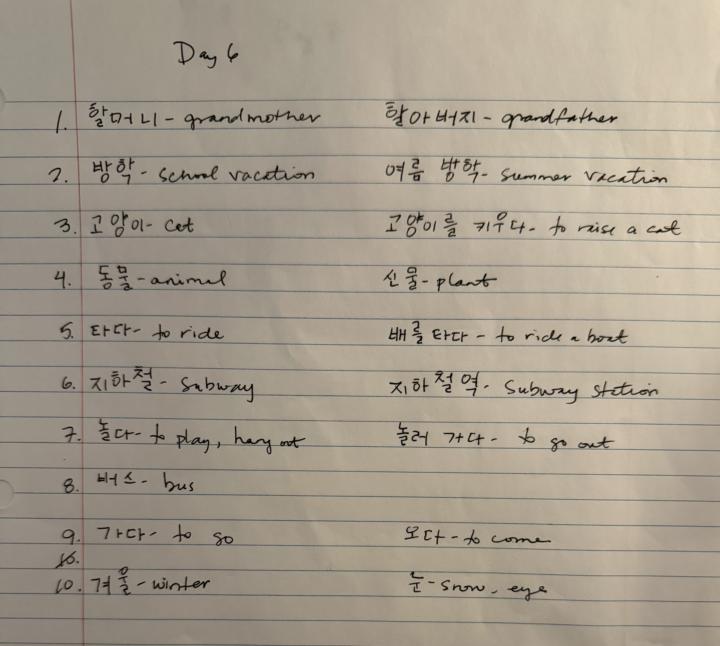 Day 6
1. 할머니 - grandmother 할아버지 - grandfather
2. 방학 - school vacation 여름 방학 - summer vacation
3. 고양이 - cat 고양이를 키우다 - to raise a cat
4. 동물 - animal 신물 - plant
5. 타다 - to ride 배를 타다 - to ride a boat
6. 지하철 - subway 지하철역 - subway station
7. 놀다 - to play, hang out 놀러 가다 - to go out
8. 버스 - bus
9. 가다 - to go 오다 - to come
10.
10. 겨울 - winter 눈 - snow, eye